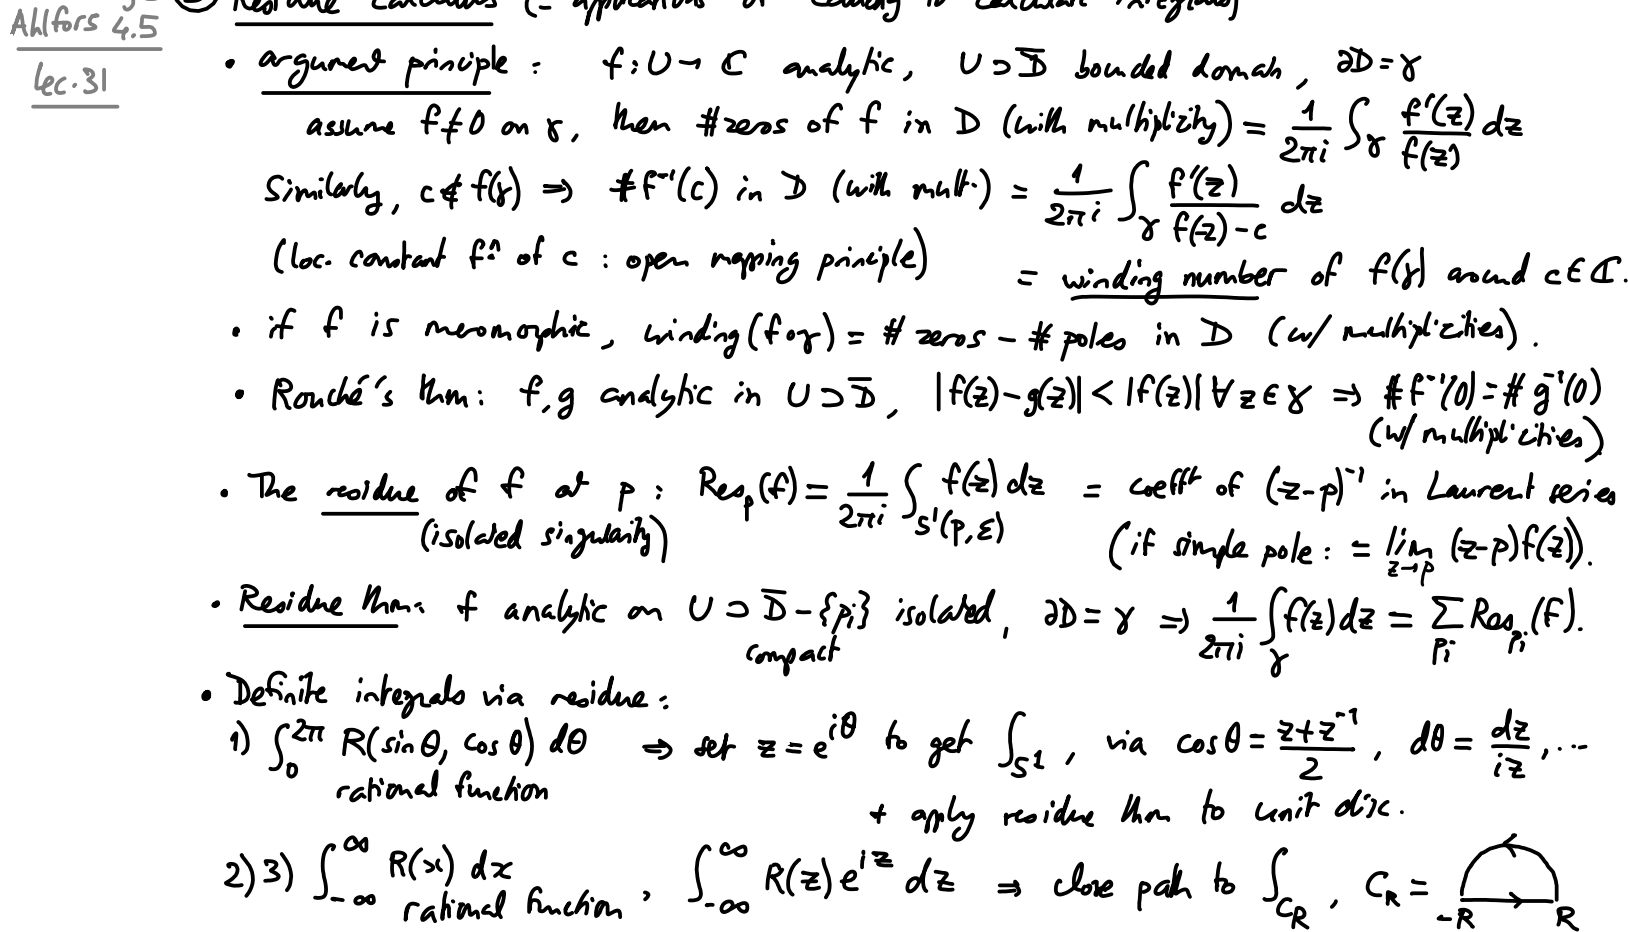 Ahlfors 4.5
Lec. 31
Residue calculus (= applications of Cauchy to calculate integrals)
• argument principle : f : U → ℂ analytic, U ⊃ D̅ bounded domain, ∂D = γ
assume f ≠ 0 on γ, then #zeros of f in D (with multiplicity) = 1/(2πi) ∫_γ f'(z)/f(z) dz
Similarly, c ∉ f(γ) ⇒ #f⁻¹(c) in D (with mult.) = 1/(2πi) ∫_γ f'(z)/(f(z)-c) dz
(loc. constant fⁿ of c : open mapping principle)
= winding number of f(γ) around c ∈ ℂ.
• if f is meromorphic, winding(f∘γ) = # zeros - # poles in D (w/ multiplicities).
• Rouché's thm: f, g analytic in U ⊃ D̅, |f(z)-g(z)| < |f(z)| ∀ z ∈ γ ⇒ #f⁻¹(0) = #g⁻¹(0)
(w/ multiplicities)
• The residue of f at p : Res_p(f) = 1/(2πi) ∫_{S¹(p,ε)} f(z) dz = coefft of (z-p)⁻¹ in Laurent series
(isolated singularity)
(if simple pole : = lim_{z→p} (z-p)f(z)).
• Residue thm: f analytic on U ⊃ D̅ - {p_i} isolated, ∂D = γ ⇒ 1/(2πi) ∫_γ f(z) dz = Σ_{p_i} Res_{p_i}(f).
compact
• Definite integrals via residue:
1) ∫_0^{2π} R(sin θ, cos θ) dθ ⇒ set z = e^{iθ} to get ∫_{S¹}, via cos θ = (z+z⁻¹)/2, dθ = dz/(iz), ...
rational function
+ apply residue thm to unit disc.
2) 3) ∫_{-∞}^{∞} R(x) dx , ∫_{-∞}^{∞} R(z) e^{iz} dz ⇒ close path to ∫_{C_R}, C_R =
rational function
-R R